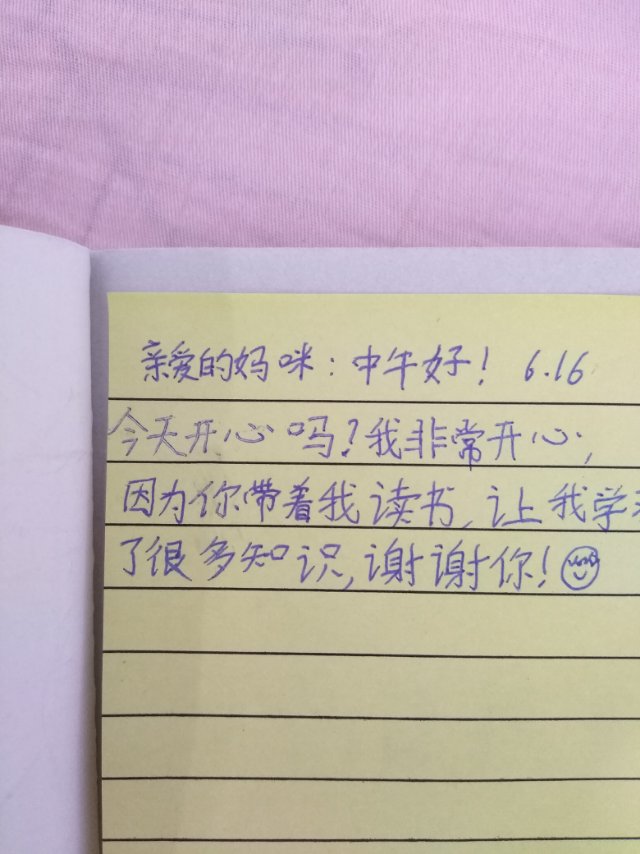 亲爱的妈咪：中午好！ 6.16
今天开心吗？我非常开心，
因为你带着我读书，让我学
了很多知识，谢谢你！